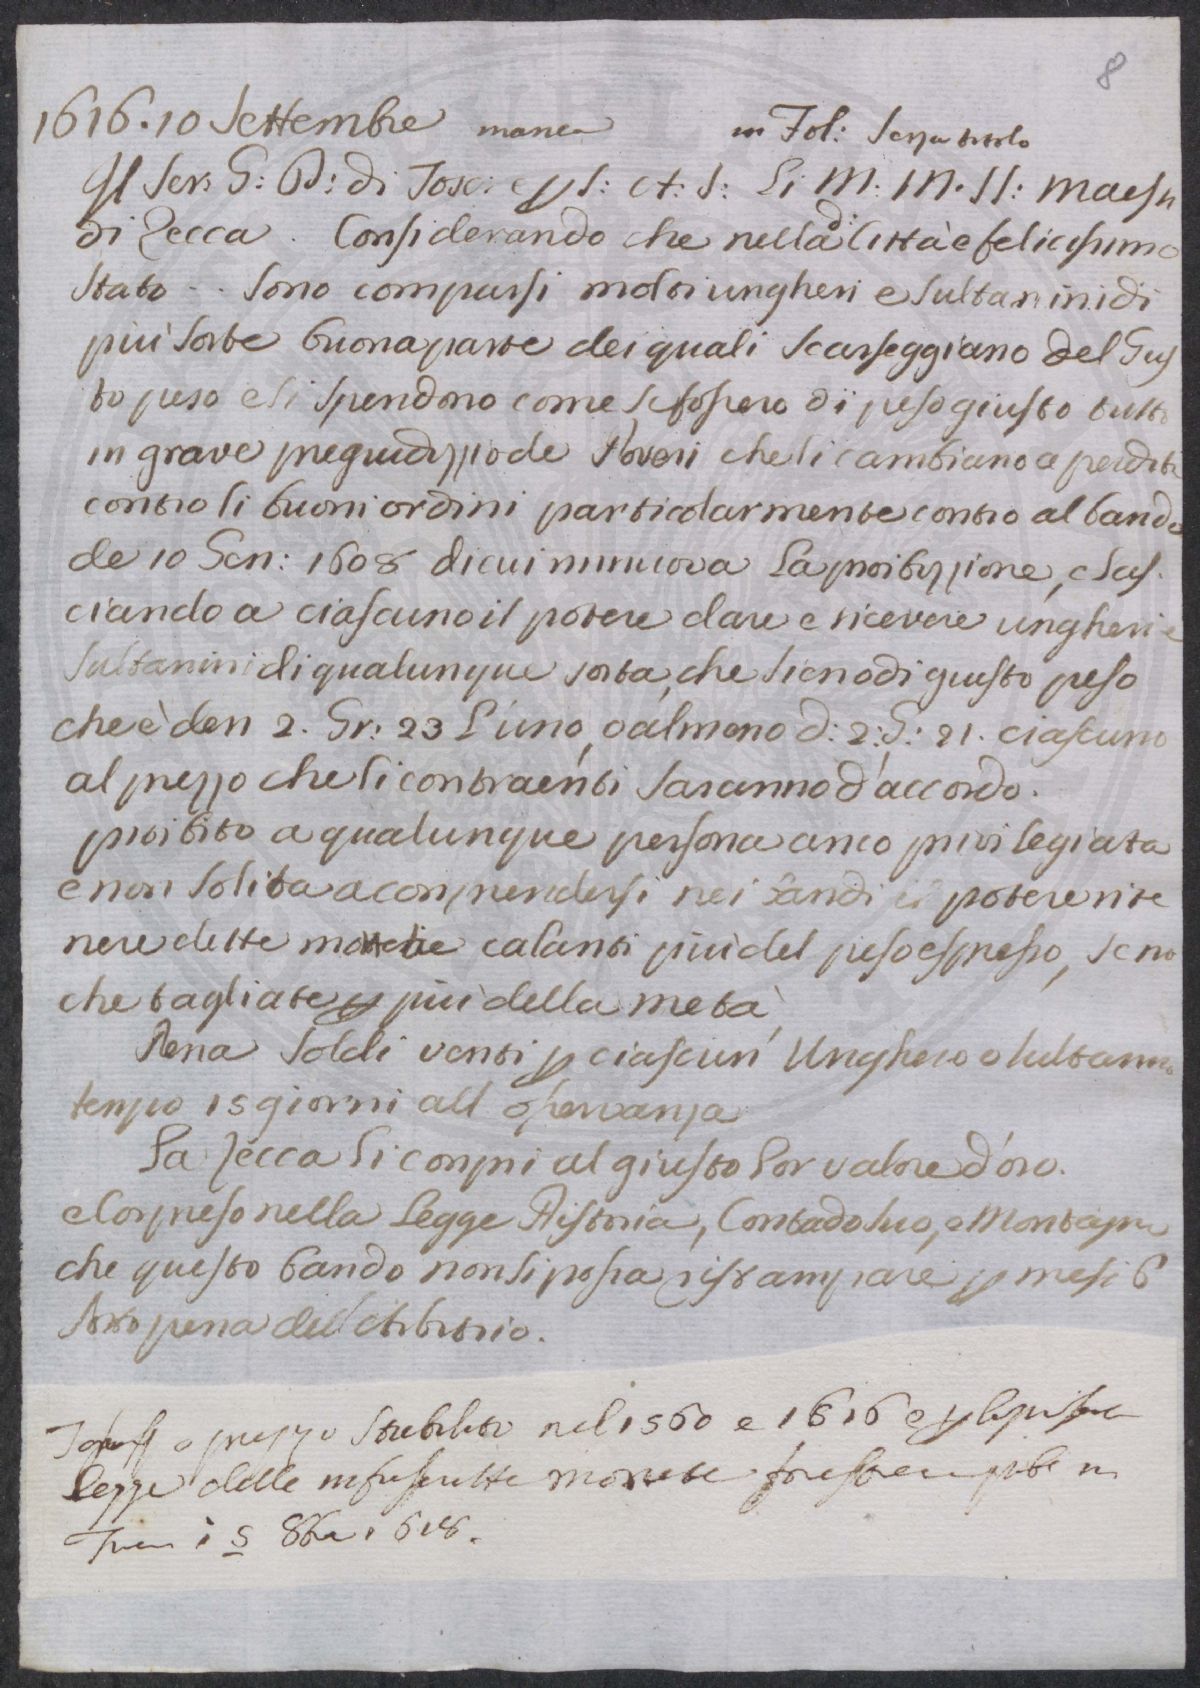 8
1616. 10 Settembre manca in Fol: senza titolo
Il Ser: G: D: di Tosc: e p S: A: S: Li M: M. SS: Maestri
di Zecca. Considerando che nella di Città e felicissimo
stato .. sono comparsi molti ungheri e sultanini di
più sorte buona parte dei quali scarseggiano del Gius
to peso e si spendono come se fossero di peso giusto tutto
in grave pregiudizzio de Poveri che li cambiano a perdita
contro li buoni ordini particolarmente contro al bando
de 10 Gen: 1608 di cui rinnuova la proibizzione, e las
ciando a ciascuno il potere dare e ricevere ungheri e
sultanini di qualunque sorta, che sieno di giusto peso
che è den 2. Gr: 23 l'uno, o almeno d: 2: G: 21. ciascuno
al prezzo che li contraenti saranno d'accordo.
proibito a qualunque persona anco privilegiata
e non solita a comprendersi nei bandi il potere rite
nere dette monete calanti più del peso espresso, se no
che tagliate p più della metà
Pena soldi venti p ciascun' Unghero o sultanino
tempo 15 giorni all osservanza
La Zecca li compri al giusto lor valore d'oro.
e compreso nella Legge Pistoia, Contado suo, e Montagna
che questo bando non si possa ristampare p mesi 6
sotto pena dell'arbitrio.
e prezzo stabilito nel 1560 e 1616 e p la presente
legge delle infrascritte monete forestiere pub: in
8bre 1618.